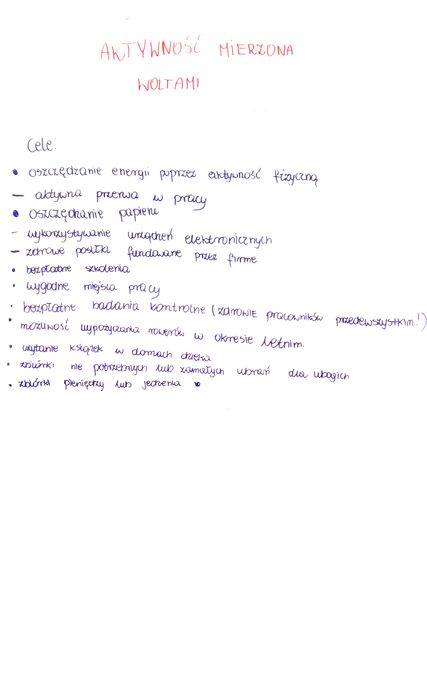 AKTYWNOŚĆ MIERZONA
WOLTAMI
Cele:
• oszczędzanie energii poprzez aktywność fizyczną
– aktywna przerwa w pracy
• oszczędzanie papieru
– wykorzystywanie urządzeń elektronicznych
– zdrowe posiłki fundowane przez firme
• bezpłatne szkolenia
• wygodne miejsca pracy
• bezpłatne badania kontrolne (zdrowie pracowników przedewszystkim!)
• możliwość wypożyczania rowerów w okresie letnim.
• czytanie książek w domach dziecka
• zbiórki nie potrzebnych lub zamałych ubrań dla ubogich
• zbiórki pieniędzy lub jedzenia